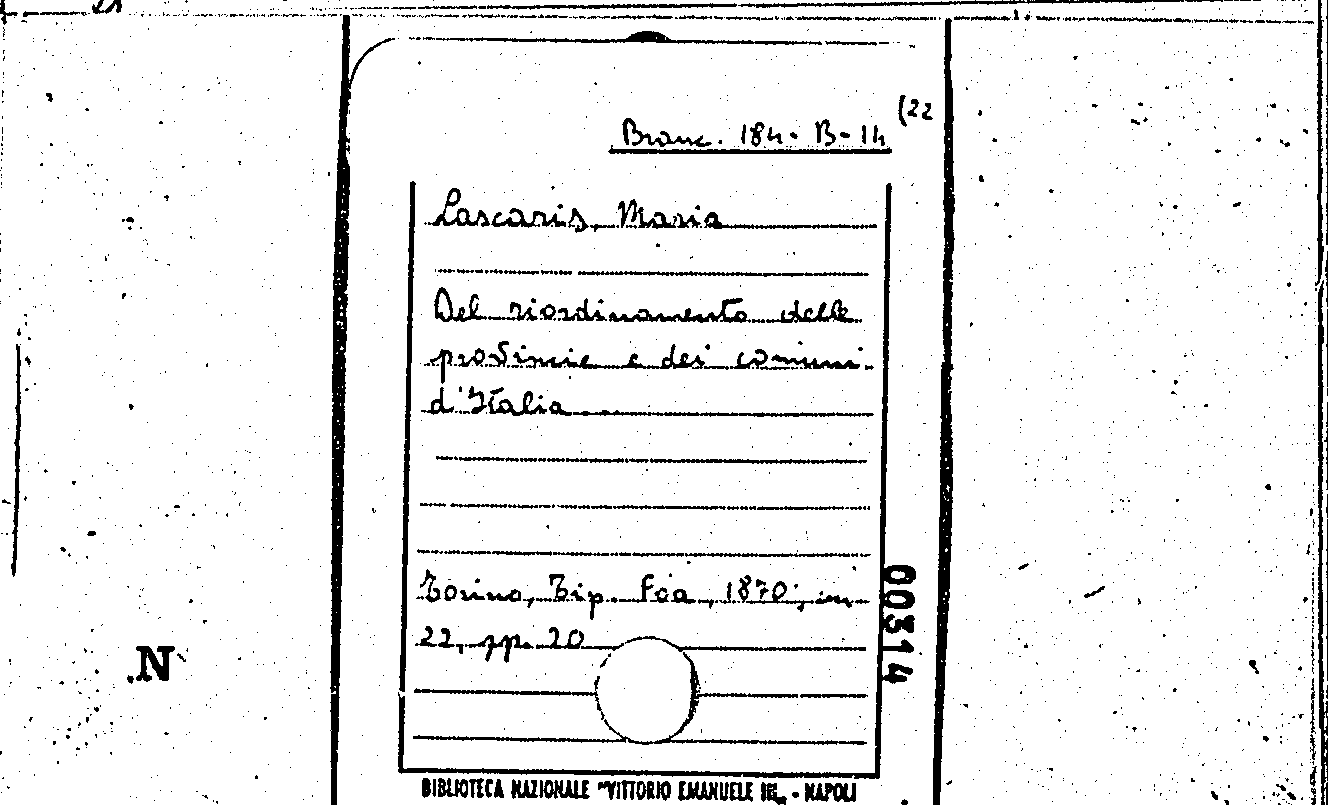 (22
Branc. 184 - B - 14
Lascaris, Maria
Del riordinamento delle
provincie e dei comuni
d'Italia ...
Torino, Tip. Foa, 1870; in-
22, pp. 20
00314
N
BIBLIOTECA NAZIONALE "VITTORIO EMANUELE III„ - NAPOLI